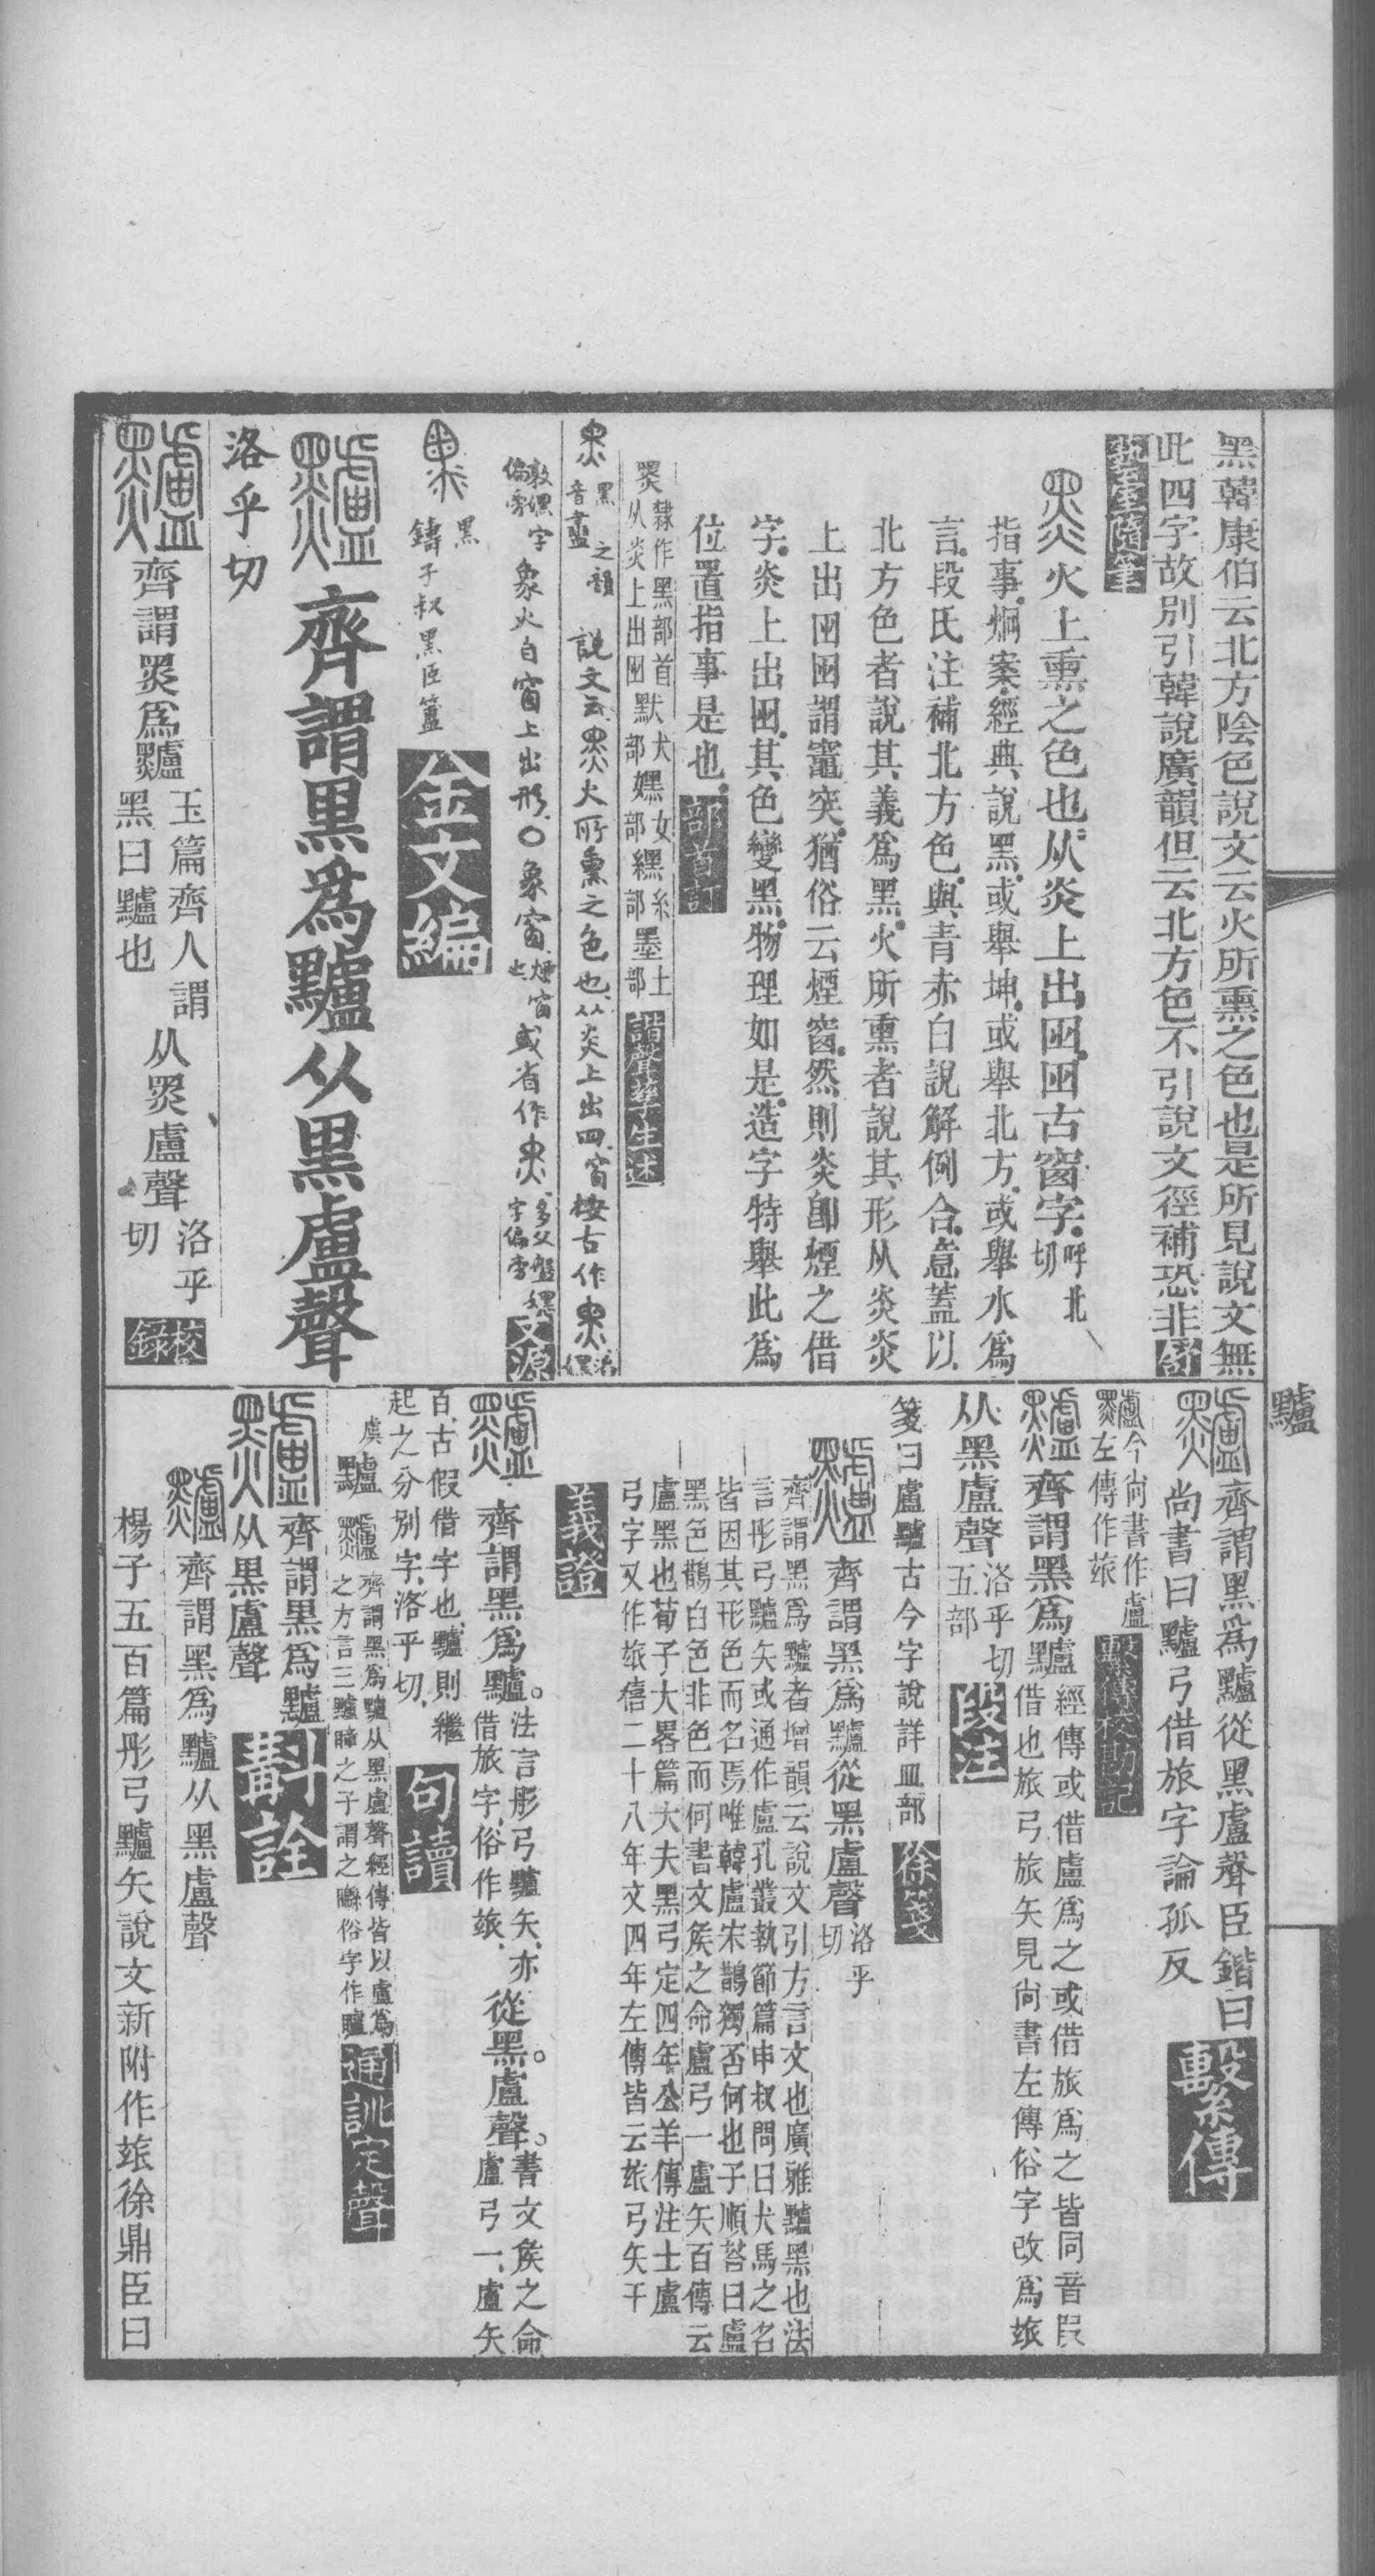 黑韓康伯云北方陰色說文云火所熏之色也是所見說文無
此四字故別引韓說廣韻但云北方色不引說文徑補恐非
隨筆
火上熏之色也从炎上出囱囱古窗字呼北切
指事烱案經典說黑或舉坤或舉北方或舉水爲
言段氏注補北方色與青赤白說解例合意蓋以
北方色者說其義爲黑火所熏者說其形从炎炎
上出囱囱謂竈突猶俗云煙窗然則炎卽煙之借
字炎上出囱其色變黑物理如是造字特舉此爲
位置指事是也 部首訂
𪐗隸作黑部首默犬部嫼女部纆糸部墨土部
从炎上出囱
諧聲孳生述
黑之韻音盡 說文云黑火所熏之色也从炎上出囱窗按古作
象火自窗上出形〇象窗煙窗也或省作
文源
黑 鑄子叔黑臣簠 金文編
齊謂黑爲黸从黑盧聲
洛乎切
齊謂𪐗爲黸玉篇齊人謂黑曰黸也从𪐗盧聲洛乎切 校錄
黸
齊謂黑爲黸從黑盧聲臣鍇曰
尚書曰黸弓借旅字論孤反 繫傳
今尚書作盧左傳作玈 繫傳校勘記
齊謂黑爲黸經傳或借盧爲之或借旅爲之皆同音叚
借也旅弓旅矢見尚書左傳俗字改爲玈
从黑盧聲洛乎切五部 段注
箋曰盧黸古今字說詳皿部 徐箋
齊謂黑爲黸從黑盧聲洛乎切
齊謂黑爲黸者增韻云說文引方言文也廣雅黸黑也法
言彤弓黸矢或通作盧孔叢執節篇申叔問曰犬馬之名
皆因其形色而名焉唯韓盧宋鵲獨否何也子順荅曰盧
黑色鵲白色非色而何書文矦之命盧弓一盧矢百傳云
盧黑也荀子大畧篇大夫黑弓定四年公羊傳注士盧
弓字又作玈僖二十八年文四年左傳皆云玈弓矢千
義證
齊謂黑爲黸。法言彤弓黸矢、亦借旅字、俗作玈、從黑。盧聲。書文矦之命盧弓一、盧矢
百、古假借字也、黸則繼起之分別字、洛乎切、 句讀
虞 黸 齊謂黑爲黸从黑盧聲經傳皆以盧爲
之方言三黸瞳之子謂之䁻俗字作矑 通訓定聲
齊謂黑爲黸
从黑盧聲 斠詮
齊謂黑爲黸从黑盧聲
楊子五百篇彤弓黸矢說文新附作玈徐鼎臣曰